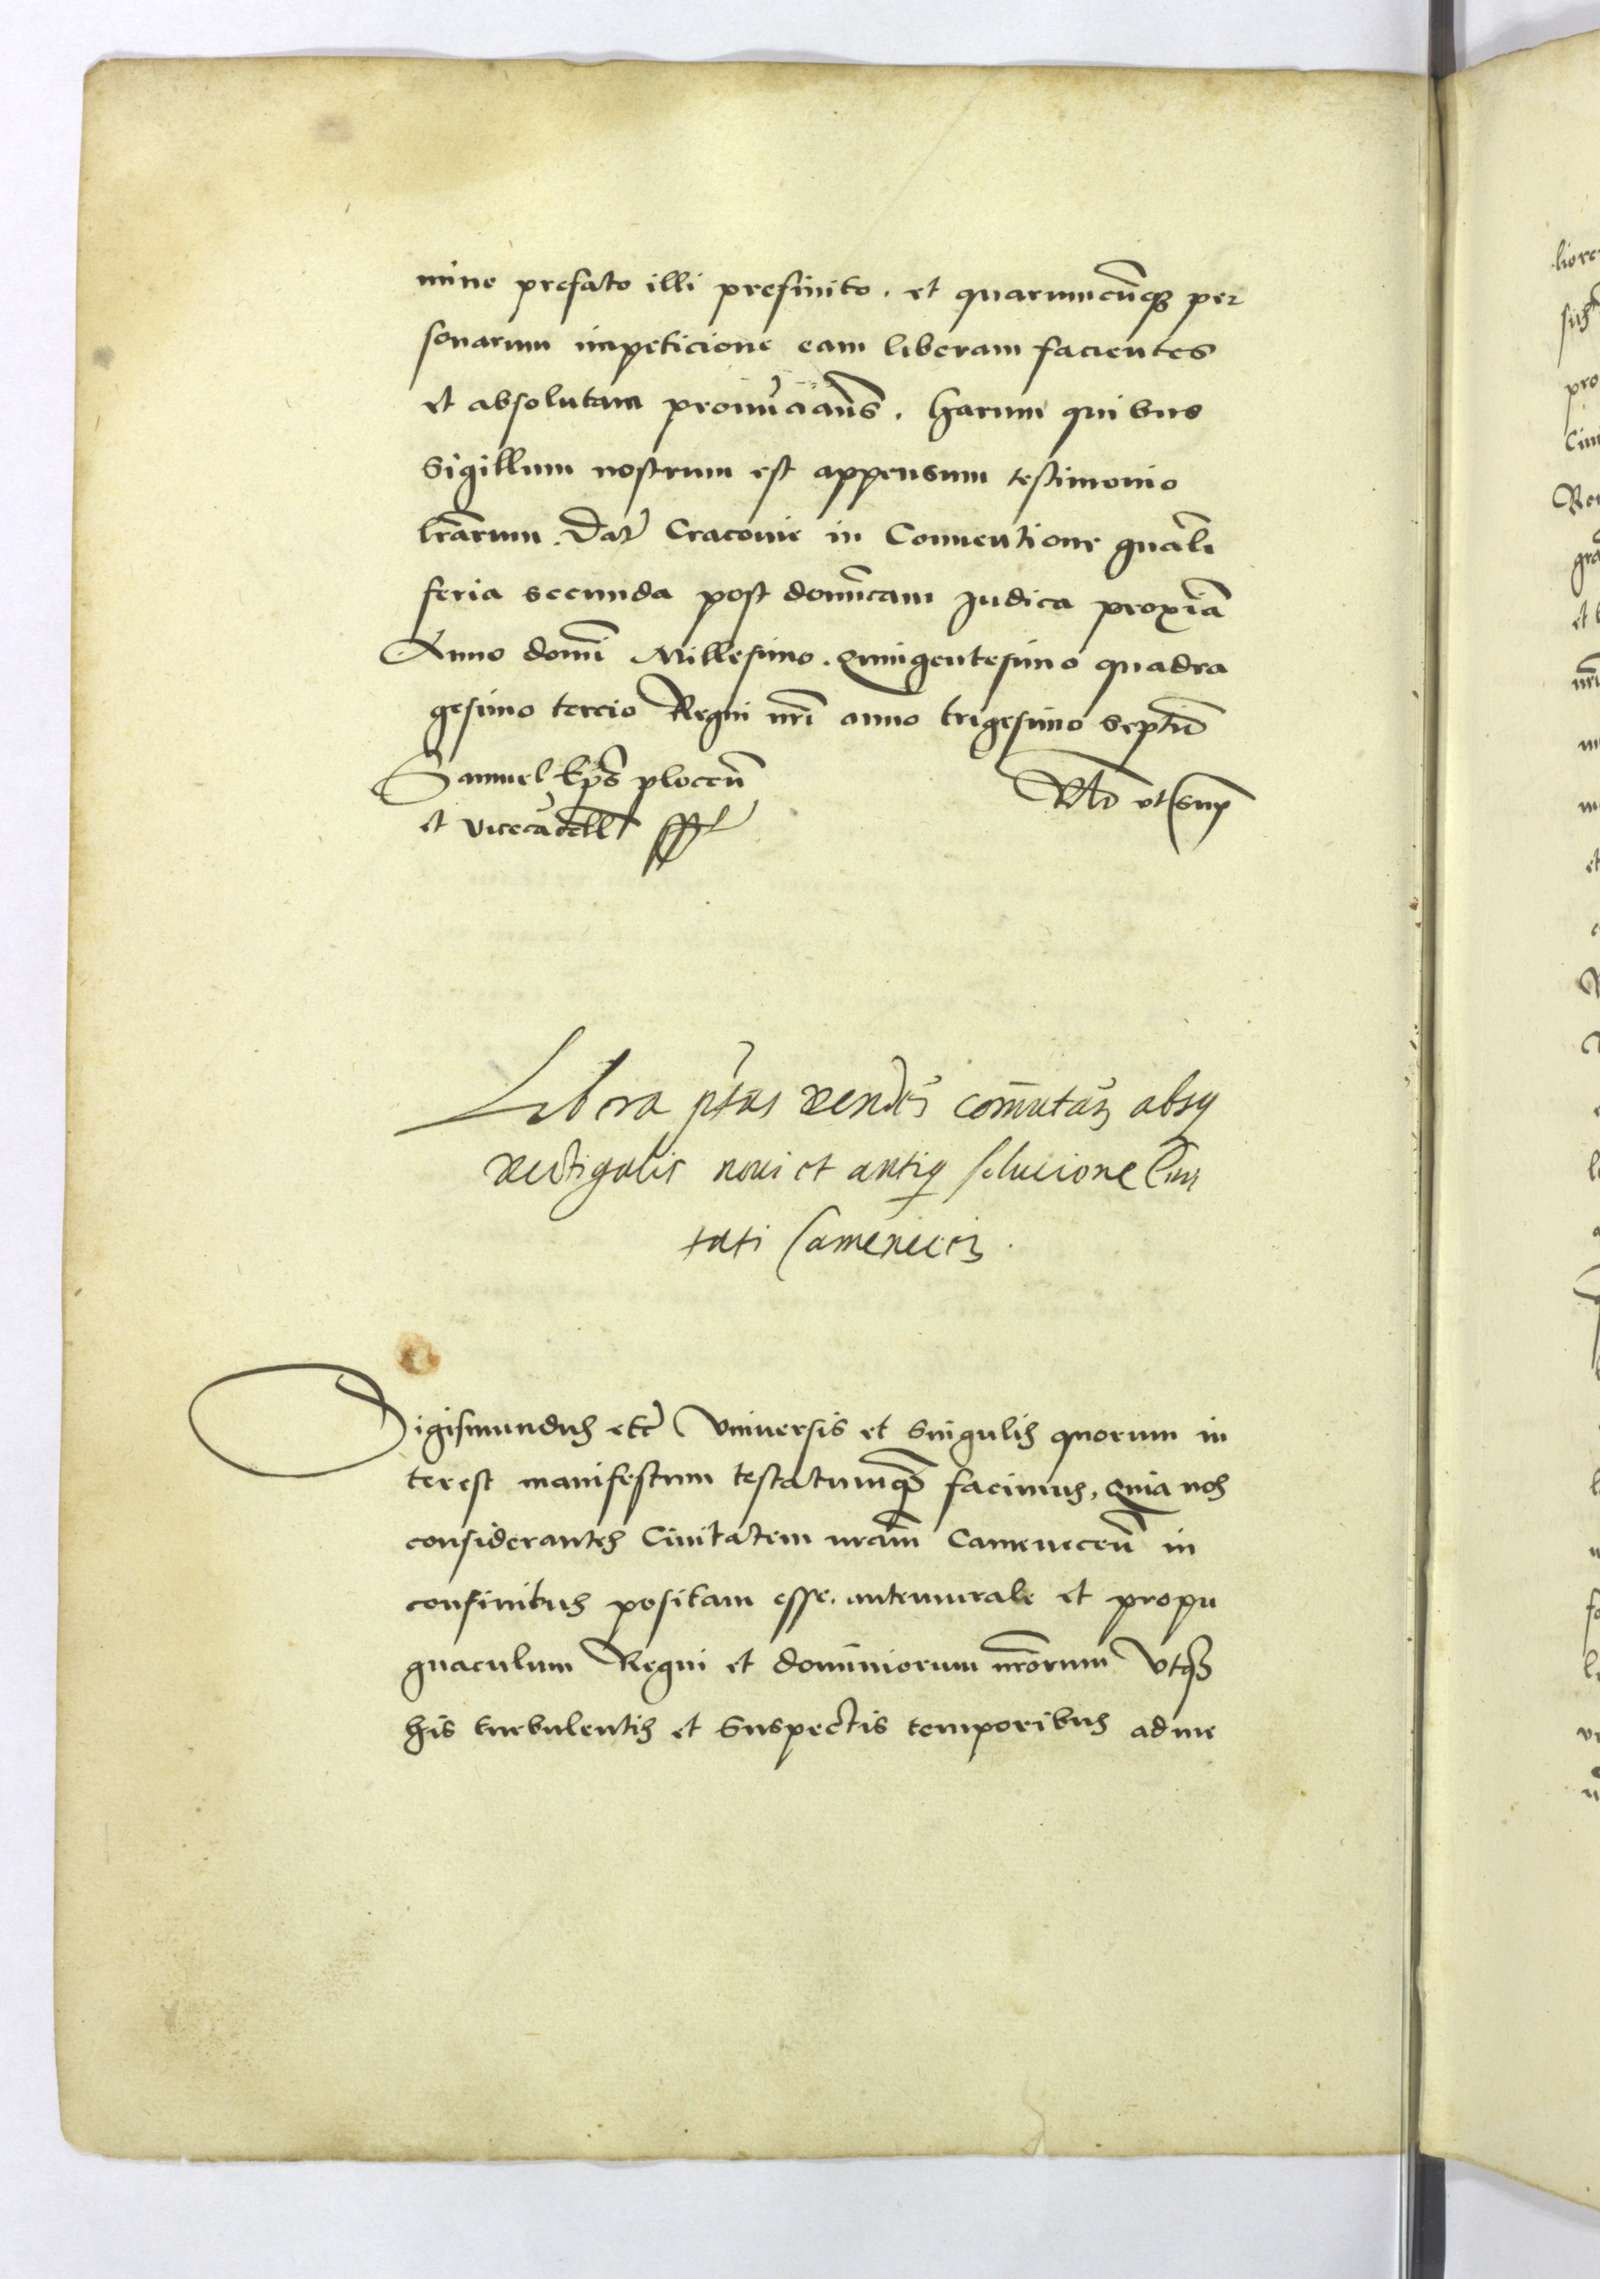 mino prefato illi prefinito. et quarumcūq3 per
sonarum impeticione eam liberam facientes
et absolutam pronūciaūs. Harum quibus
Sigillum nostrum est appensum testimonio
lr̄arum. Dat̄ Cracovie in Conventione gn̄ali
feria secunda post domīcam Judica proxīa
Anno domī Millesimo. Quingentesimo quadra
gesimo tercio Regni nr̄i anno trigesimo septīo
Samuel Ep̄s plocen̄
et vicecācell̄
Rl̄o ut sup̄
Libera p̄tas vendēi comutāi absq
vectigalis novi et antiq solucione Civi
tati Camenecēi.
Sigismundus etc̄ Universis et singulis quorum in
terest manifestum testatumq3 facimus, Quia nos
considerantes Civitatem nr̄am Camenecen̄ in
confinibus positam esse. antemurale et propu
gnaculum Regni et dominiorum nr̄orum Utq3
his turbulentis et suspectis temporibus ad me